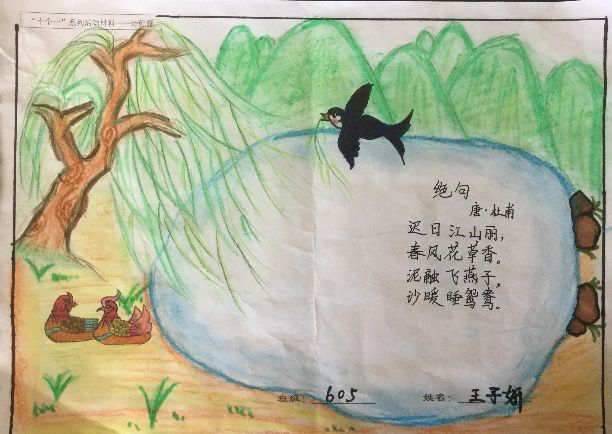 “十个一”系列活动材料——诗配画
绝句
唐·杜甫
迟日江山丽，
春风花草香。
泥融飞燕子，
沙暖睡鸳鸯。
班级：605 姓名：王子妍